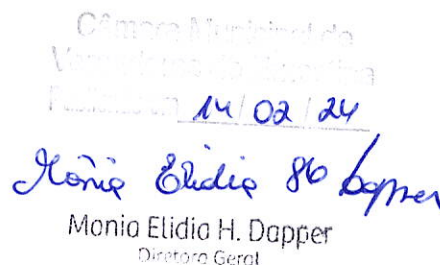 Câmara Municipal de
Vereadores de
Publicado em 14/02/24
Mônia Elidia H. Dapper
Monia Elidia H. Dapper
Diretora Geral